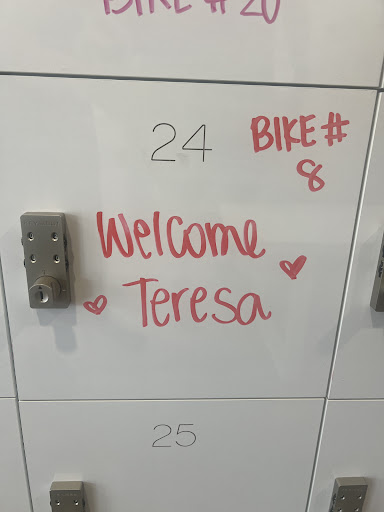 BIKE # 20
24
BIKE #
8
Welcome
Teresa
25